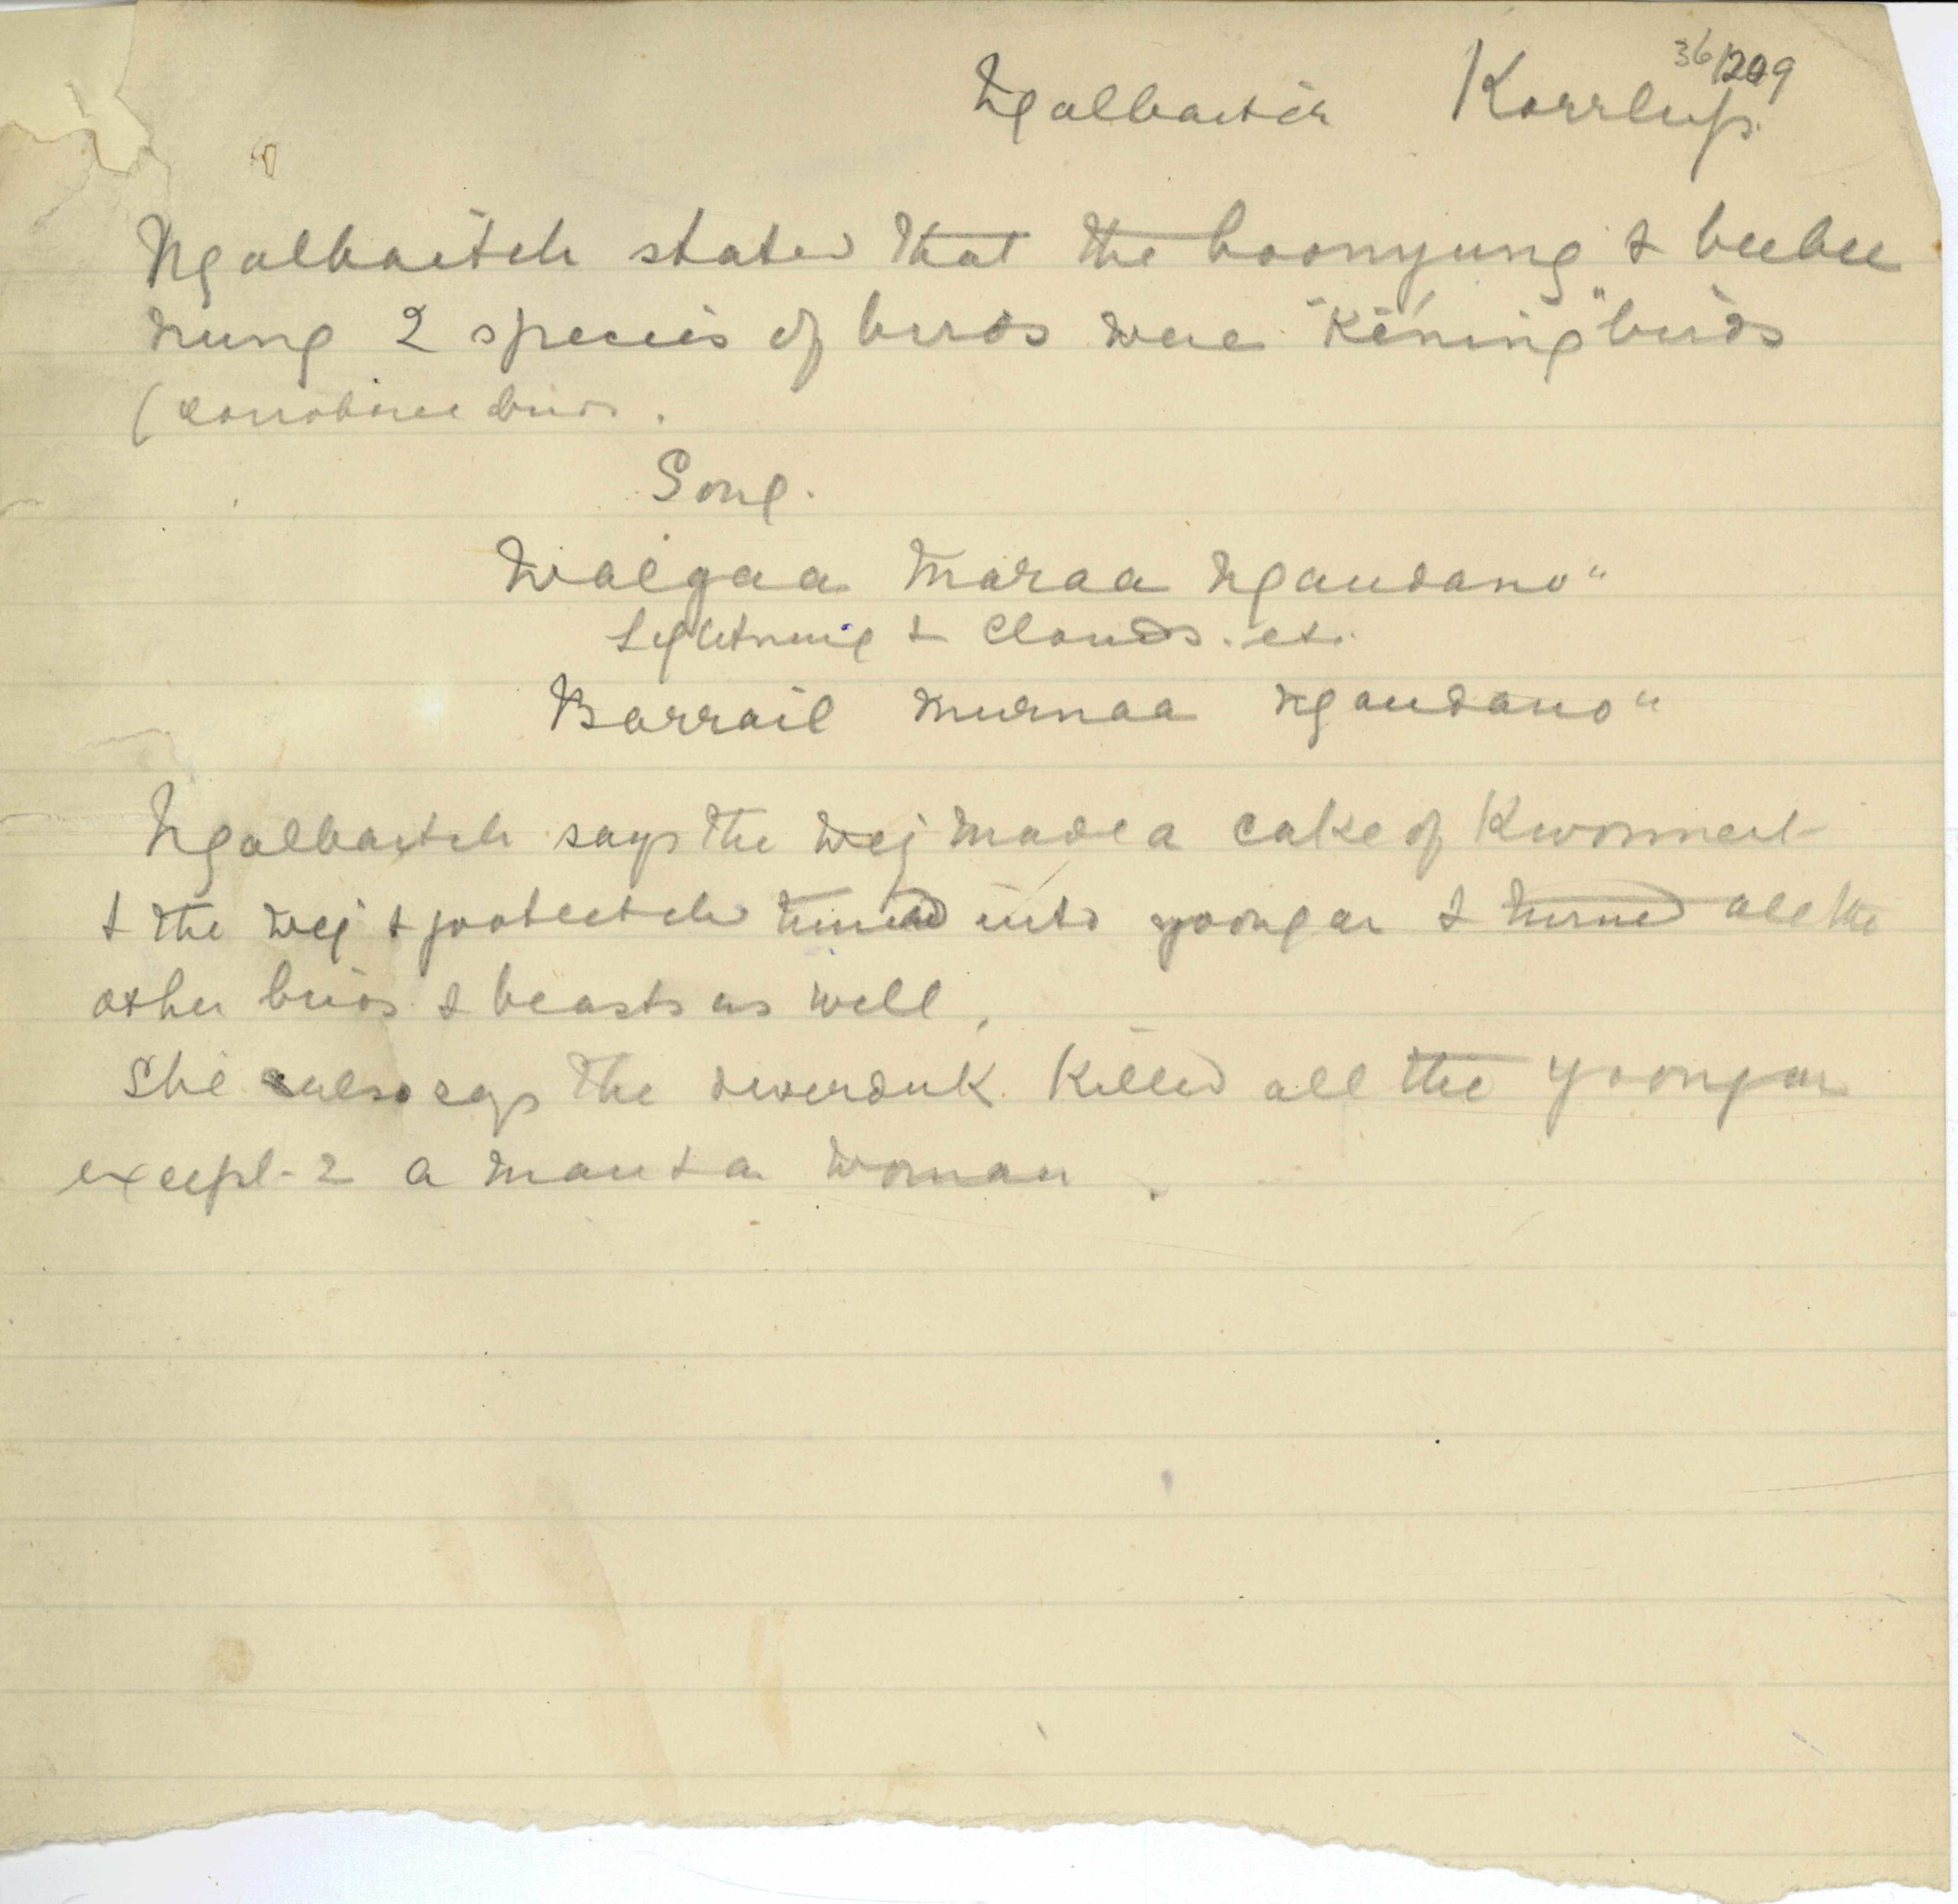 36/209
Ngalbaitch Korrlup.
Ngalbaitch stated that the boonyung & beebee
nung 2 species of birds were "Kening" birds
(corroboree birds.
Song.
Walgaa maraa ngaudano"
Lightning & Clouds. etc.
Barrail murnaa ngaudano"
Ngalbaitch says the wej made a cake of Kwonnert
& the wej & jooteetch turned into yoongar & turned all the
other birds & beasts as well.
She also says the dwerduk killed all the yoongar
except 2 a man & a woman.